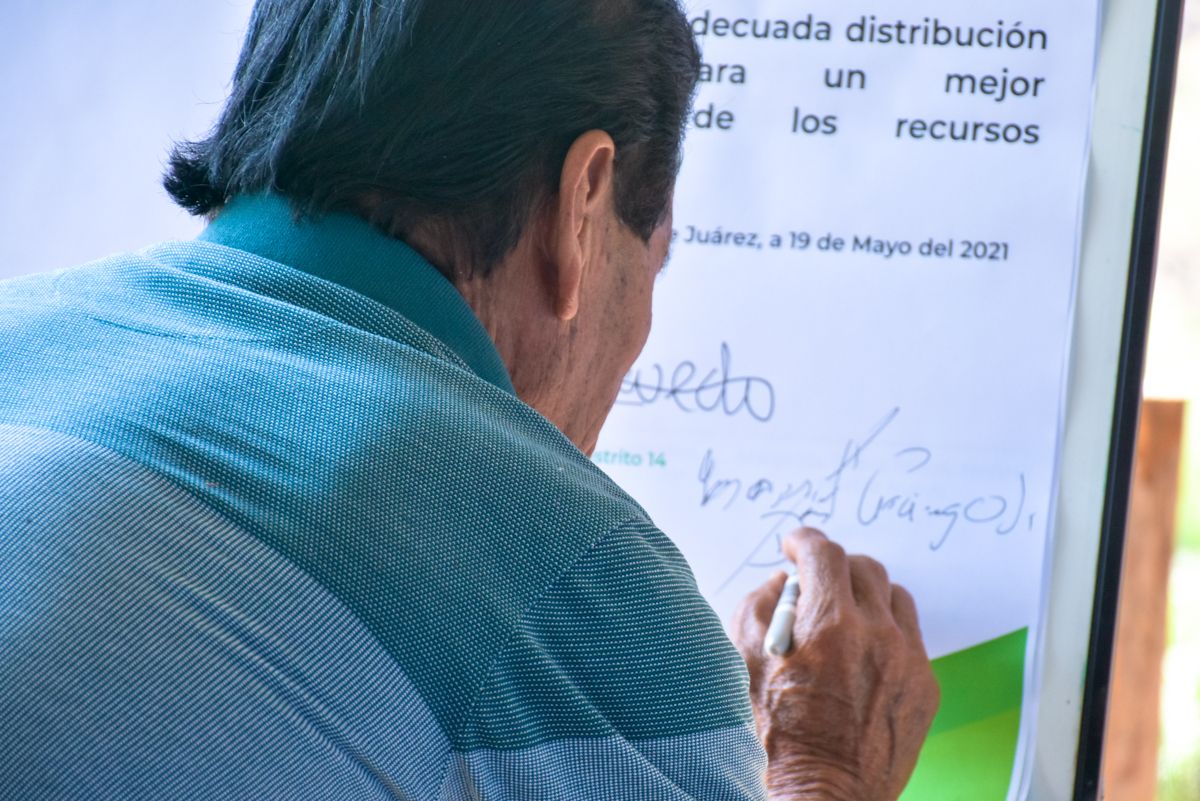 decuada distribución
ara un mejor
de los recursos
e Juárez, a 19 de Mayo del 2021
strito 14